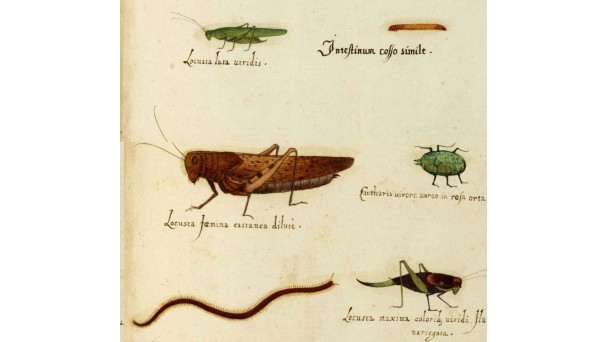 Locusta lata viridis .
Intestinum cosso simile .
Cantharis virore aureo in rosa orta
Locusta fœmina castanea dilutè .
Locusta maxima viridi
variegata .